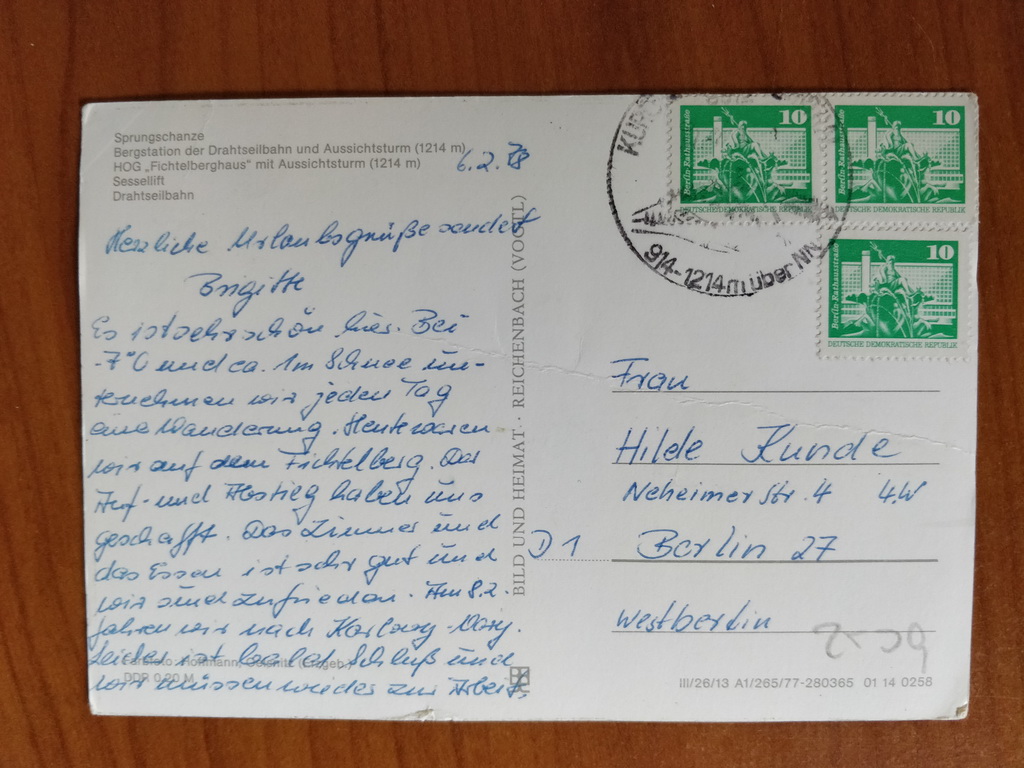 Sprungschanze
Bergstation der Drahtseilbahn und Aussichtsturm (1214 m)
HOG „Fichtelberghaus" mit Aussichtsturm (1214 m)
Sessellift
Drahtseilbahn
6.2.78
Herzliche Urlaubsgrüße sendet
Brigitte
Es ist sehr schön hier. Bei
-7°C und ca. 1m Schnee un-
ternehmen wir jeden Tag
eine Wanderung. Heute waren
wir auf dem Fichtelberg. Der
Auf- und Abstieg haben uns
geschafft. Das Zimmer und
das Essen ist sehr gut und
wir sind zufrieden. Am 8.2.
fahren wir nach Karlovy-Vary.
Leider ist bald Schluß und
wir müssen wieder zur Arbeit.
Farbfoto: Hoffmann, (Erzgeb.)
DDR 0,20 M
BILD UND HEIMAT · REICHENBACH (VOGTL)
KURO
914-1214m über NN
10
Berlin-Rathausstraße
DEUTSCHE DEMOKRATISCHE REPUBLIK
10
Berlin-Rathausstraße
DEUTSCHE DEMOKRATISCHE REPUBLIK
10
Berlin-Rathausstraße
DEUTSCHE DEMOKRATISCHE REPUBLIK
Frau
Hilde Kunde
Neheimer Str. 4 4.W
D 1 Berlin 27
Westberlin
III/26/13 A1/265/77-280365 01 14 0258